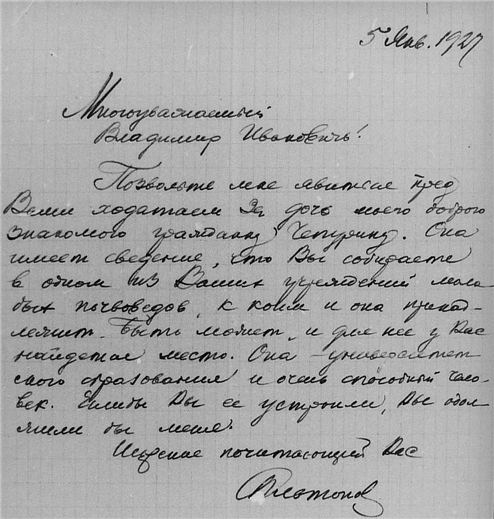 5 Янв. 1927
Многоуважаемый
Владимир Иванович!
Позвольте мне явиться пред
Вами ходатаем за дочь моего доброго
знакомого гражданку Чепурину. Она
имеет сведение, что Вы собираете
в одном из Ваших учреждений моло-
дых почвоведов, к коим и она принад-
лежит. Быть может, и для нее у Вас
найдется место. Она – университет-
ского образования и очень способный чело-
век. Если бы Вы ее устроили, Вы обя-
зали бы меня.
Искренне почитающий Вас
Платонов